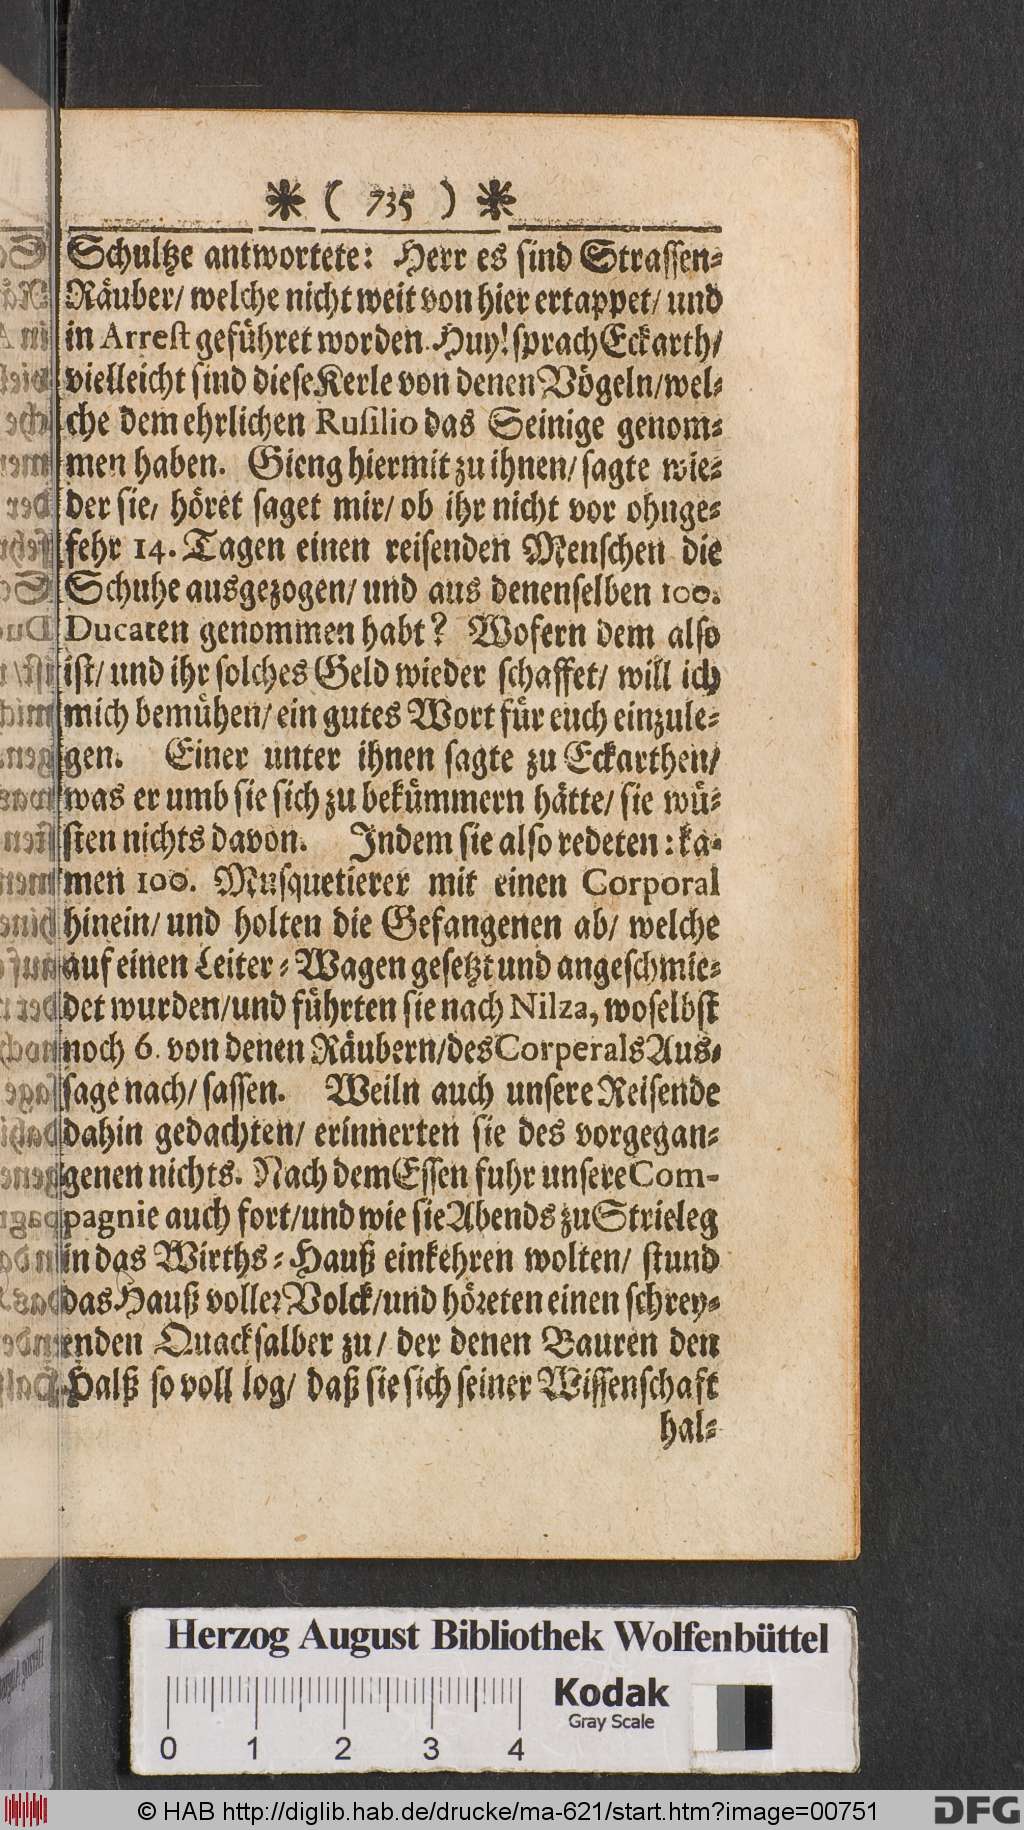 * ( 735 ) *
Schultze antwortete: Herr es sind Strassen-
Räuber/ welche nicht weit von hier ertappet/ und
in Arrest geführet worden. Huy! sprach Eckarth/
vielleicht sind diese Kerle von denen Vögeln/ wel-
che dem ehrlichen Rusilio das Seinige genom-
men haben. Gieng hiermit zu ihnen/ sagte wie-
der sie, höret saget mir/ ob ihr nicht vor ohnge-
fehr 14. Tagen einen reisenden Menschen die
Schuhe ausgezogen/ und aus denenselben 100.
Ducaten genommen habt? Wofern dem also
ist/ und ihr solches Geld wieder schaffet/ will ich
mich bemühen/ ein gutes Wort für euch einzule-
gen. Einer unter ihnen sagte zu Eckarthen/
was er umb sie sich zu bekümmern hätte/ sie wü-
sten nichts davon. Indem sie also redeten: ka-
men 100. Musquetierer mit einen Corporal
hinein/ und holten die Gefangenen ab/ welche
auf einen Leiter-Wagen gesetzt und angeschmie-
det wurden/ und führten sie nach Nilza, woselbst
noch 6. von denen Räubern/ des Corperals Aus-
sage nach/ sassen. Weiln auch unsere Reisende
dahin gedachten/ erinnerten sie des vorgegan-
genen nichts. Nach dem Essen fuhr unsere Com-
pagnie auch fort/ und wie sie Abends zu Strieleg
in das Wirths-Hauß einkehren wolten/ stund
das Hauß voller Volck/ und höreten einen schrey-
enden Quacksalber zu/ der denen Bauren den
Halß so voll log/ daß sie sich seiner Wissenschaft
hal-
Herzog August Bibliothek Wolfenbüttel
Kodak
Gray Scale
0 1 2 3 4
© HAB http://diglib.hab.de/drucke/ma-621/start.htm?image=00751
DFG